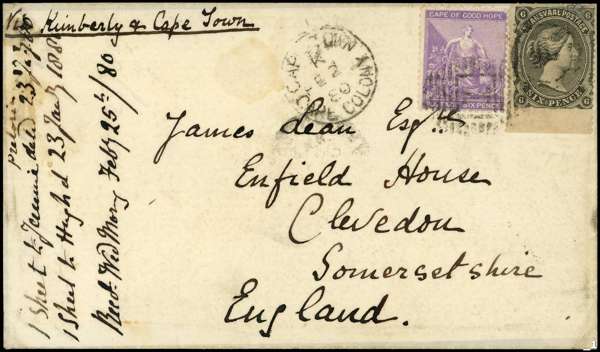 Via Kimberly & Cape Town
CAPE TOWN
CAPE COLO
CAPE OF GOOD HOPE
SIX PENCE
TRANSVAAL POSTAGE
6 6
SIX PENCE
6 6
James Dean Esqre
Enfield House
Clevedon
Somersetshire
England.
1 Sheet to dated 23 Jany
1 Sheet to Hugh d 23 Jany 188
Recd. Wed Morng Feby 25th / 80